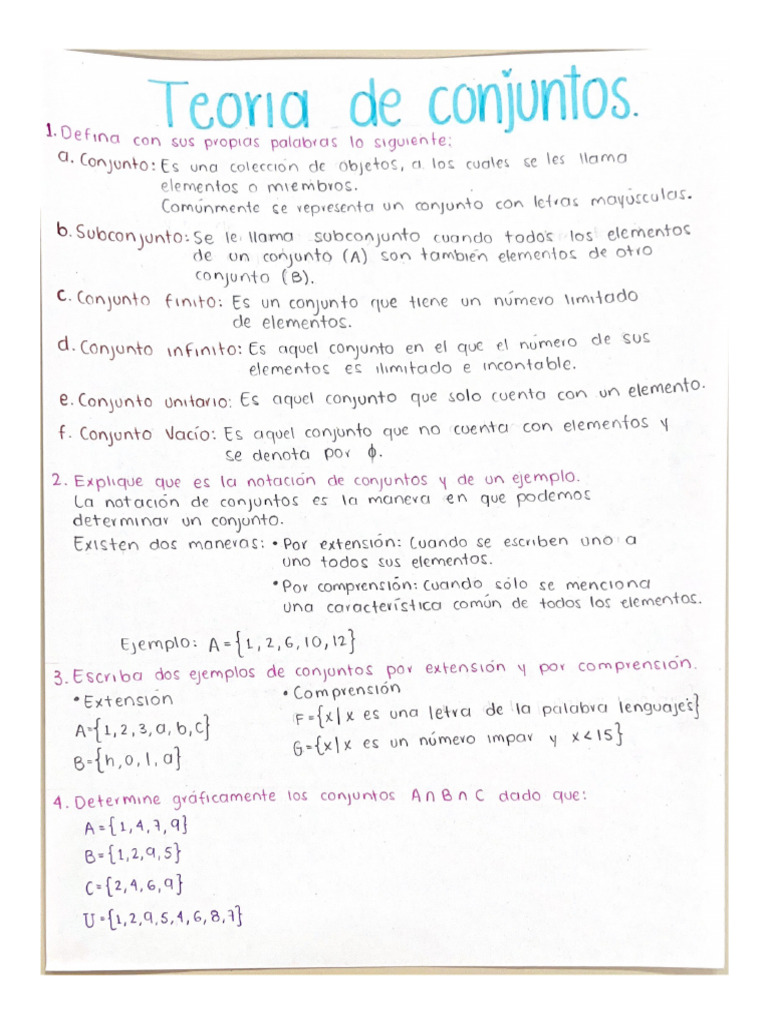 Teoria de conjuntos.
1. Defina con sus propias palabras lo siguiente:
a. Conjunto: Es una colección de objetos, a los cuales se les llama
elementos o miembros.
Comúnmente se representa un conjunto con letras mayúsculas.
b. Subconjunto: Se le llama subconjunto cuando todos los elementos
de un conjunto (A) son también elementos de otro
conjunto (B).
c. Conjunto finito: Es un conjunto que tiene un número limitado
de elementos.
d. Conjunto infinito: Es aquel conjunto en el que el número de sus
elementos es ilimitado e incontable.
e. Conjunto unitario: Es aquel conjunto que solo cuenta con un elemento.
f. Conjunto Vacío: Es aquel conjunto que no cuenta con elementos y
se denota por ϕ.
2. Explique que es la notación de conjuntos y de un ejemplo.
La notación de conjuntos es la manera en que podemos
determinar un conjunto.
Existen dos maneras: • Por extensión: Cuando se escriben uno a
uno todos sus elementos.
• Por comprensión: Cuando sólo se menciona
una característica común de todos los elementos.
Ejemplo: A={1,2,6,10,12}
3. Escriba dos ejemplos de conjuntos por extensión y por comprensión.
• Extensión
A={1,2,3,a,b,c}
B={h,o,l,a}
• Comprensión
F={x|x es una letra de la palabra lenguaje's}
G={x|x es un número impar y x<15}
4. Determine gráficamente los conjuntos A∩B∩C dado que:
A={1,4,7,9}
B={1,2,9,5}
C={2,4,6,9}
U={1,2,9,5,4,6,8,7}